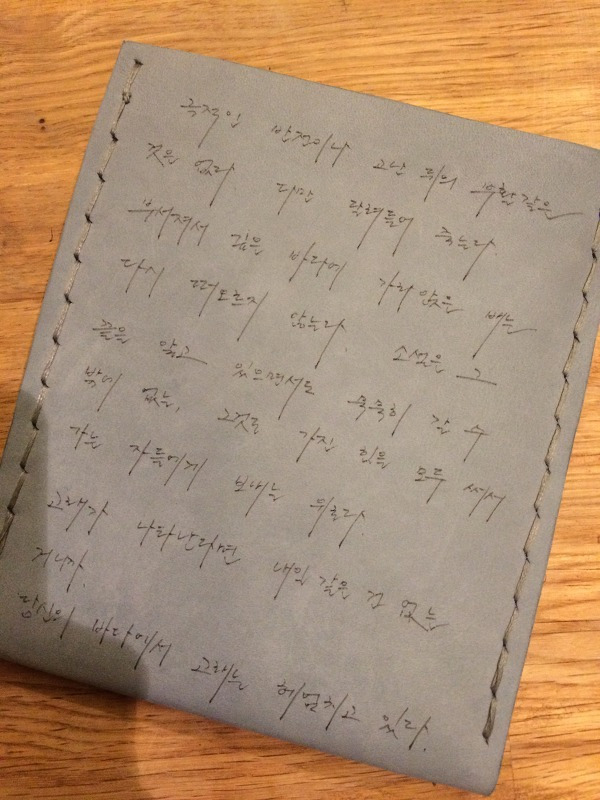 극적인 반전이나 고난 뒤의 부활같은
것은 없다 다만 달려들어 죽는다.
부서져서 깊은 바다에 가라앉은 배는
다시 떠오르지 않는다. 소설은 그
끝을 알고 있으면서도 묵묵히 갈 수
밖에 없는, 그것도 가진 힘을 모두 써서
가는 자들에게 보내는 위로다.
고래가 나타난다면 내일 같은 건 없는
거니까.
당신의 바다에서 고래는 헤엄치고 있다.